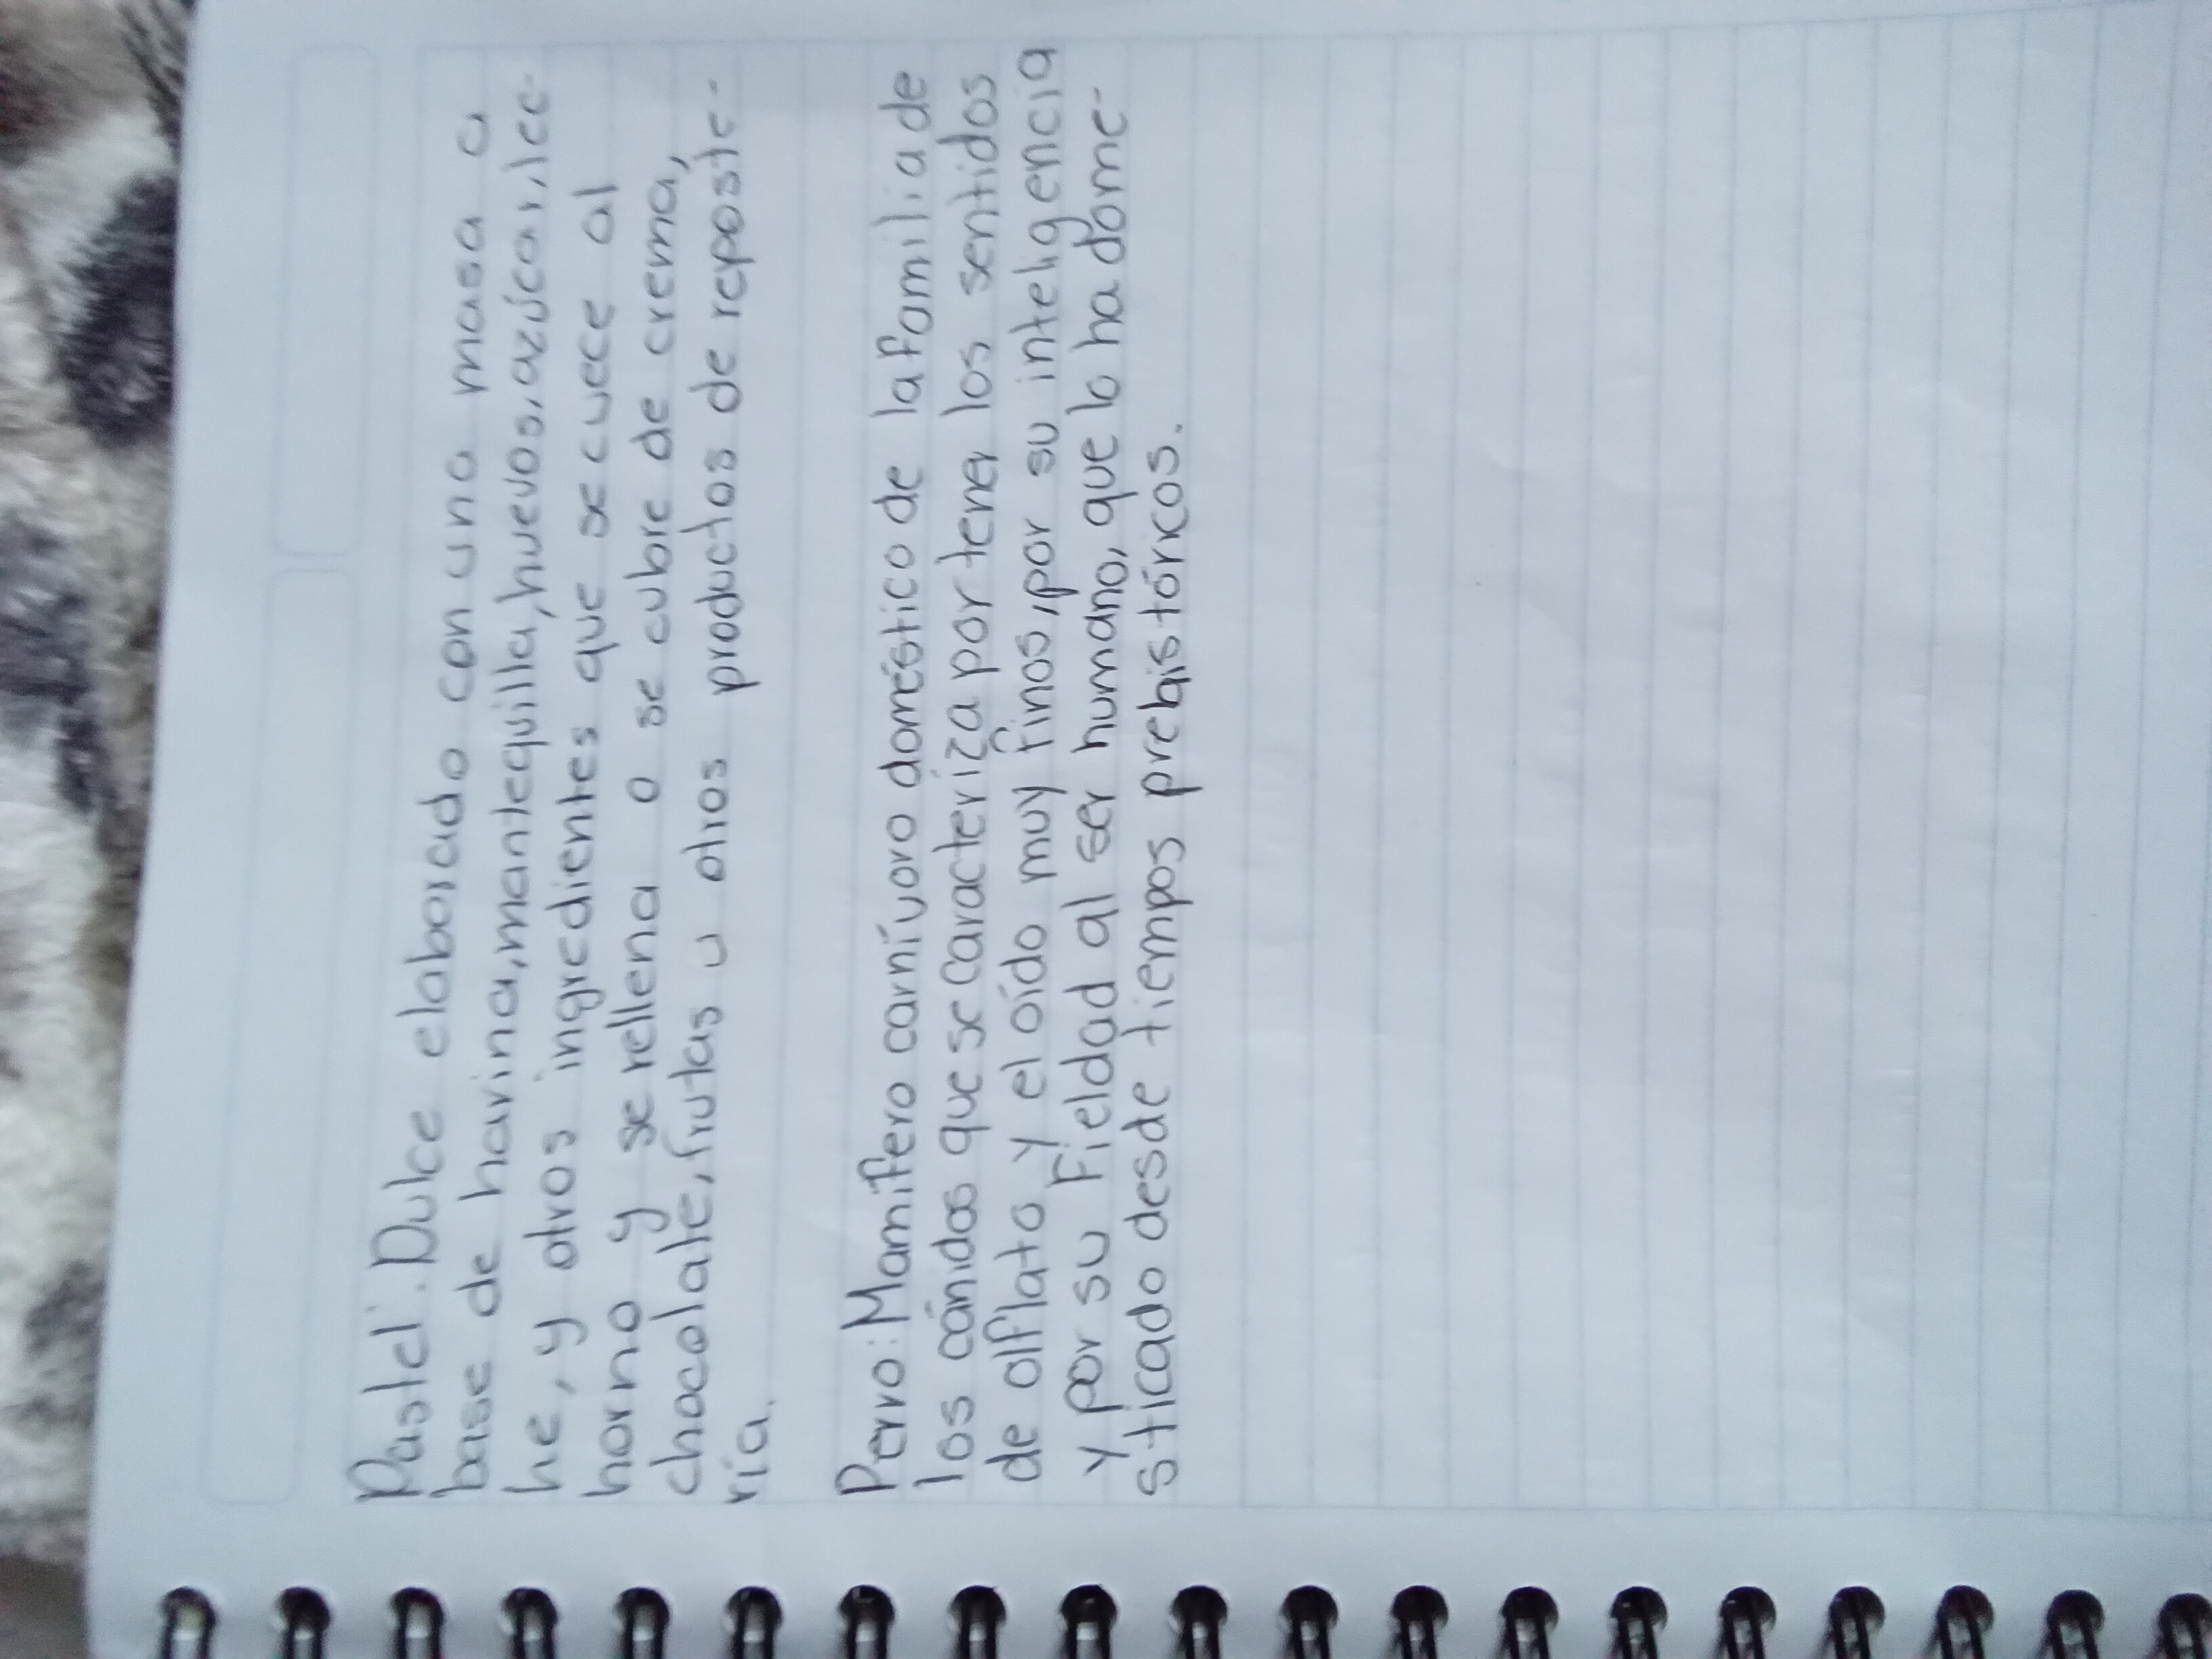 Pastel: Dulce elaborado con una masa a
base de harina, mantequilla, huevos, azúcar, lec-
he, y otros ingredientes que se cuece al
horno y se rellena o se cubre de crema,
chocolate, frutas u otros productos de reposte-
ría.
Perro: Mamífero carnívoro doméstico de la familia de
los cánidos que se caracteriza por tener los sentidos
de olflato y el oído muy finos, por su inteligencia
y por su fieldad al ser humano, que lo ha dome-
sticado desde tiempos prehistóricos.